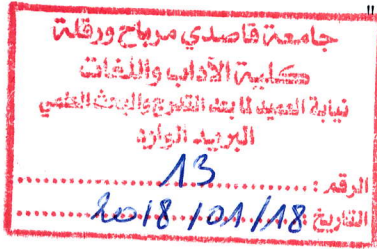 "
جامعة قاصدي مرباح ورقلة
كلية الآداب واللغات
نيابة العميد لما بعد التدرج والبحث العلمي
البريد الوارد
الرقم : ........13........
التاريخ : 2018/01/18